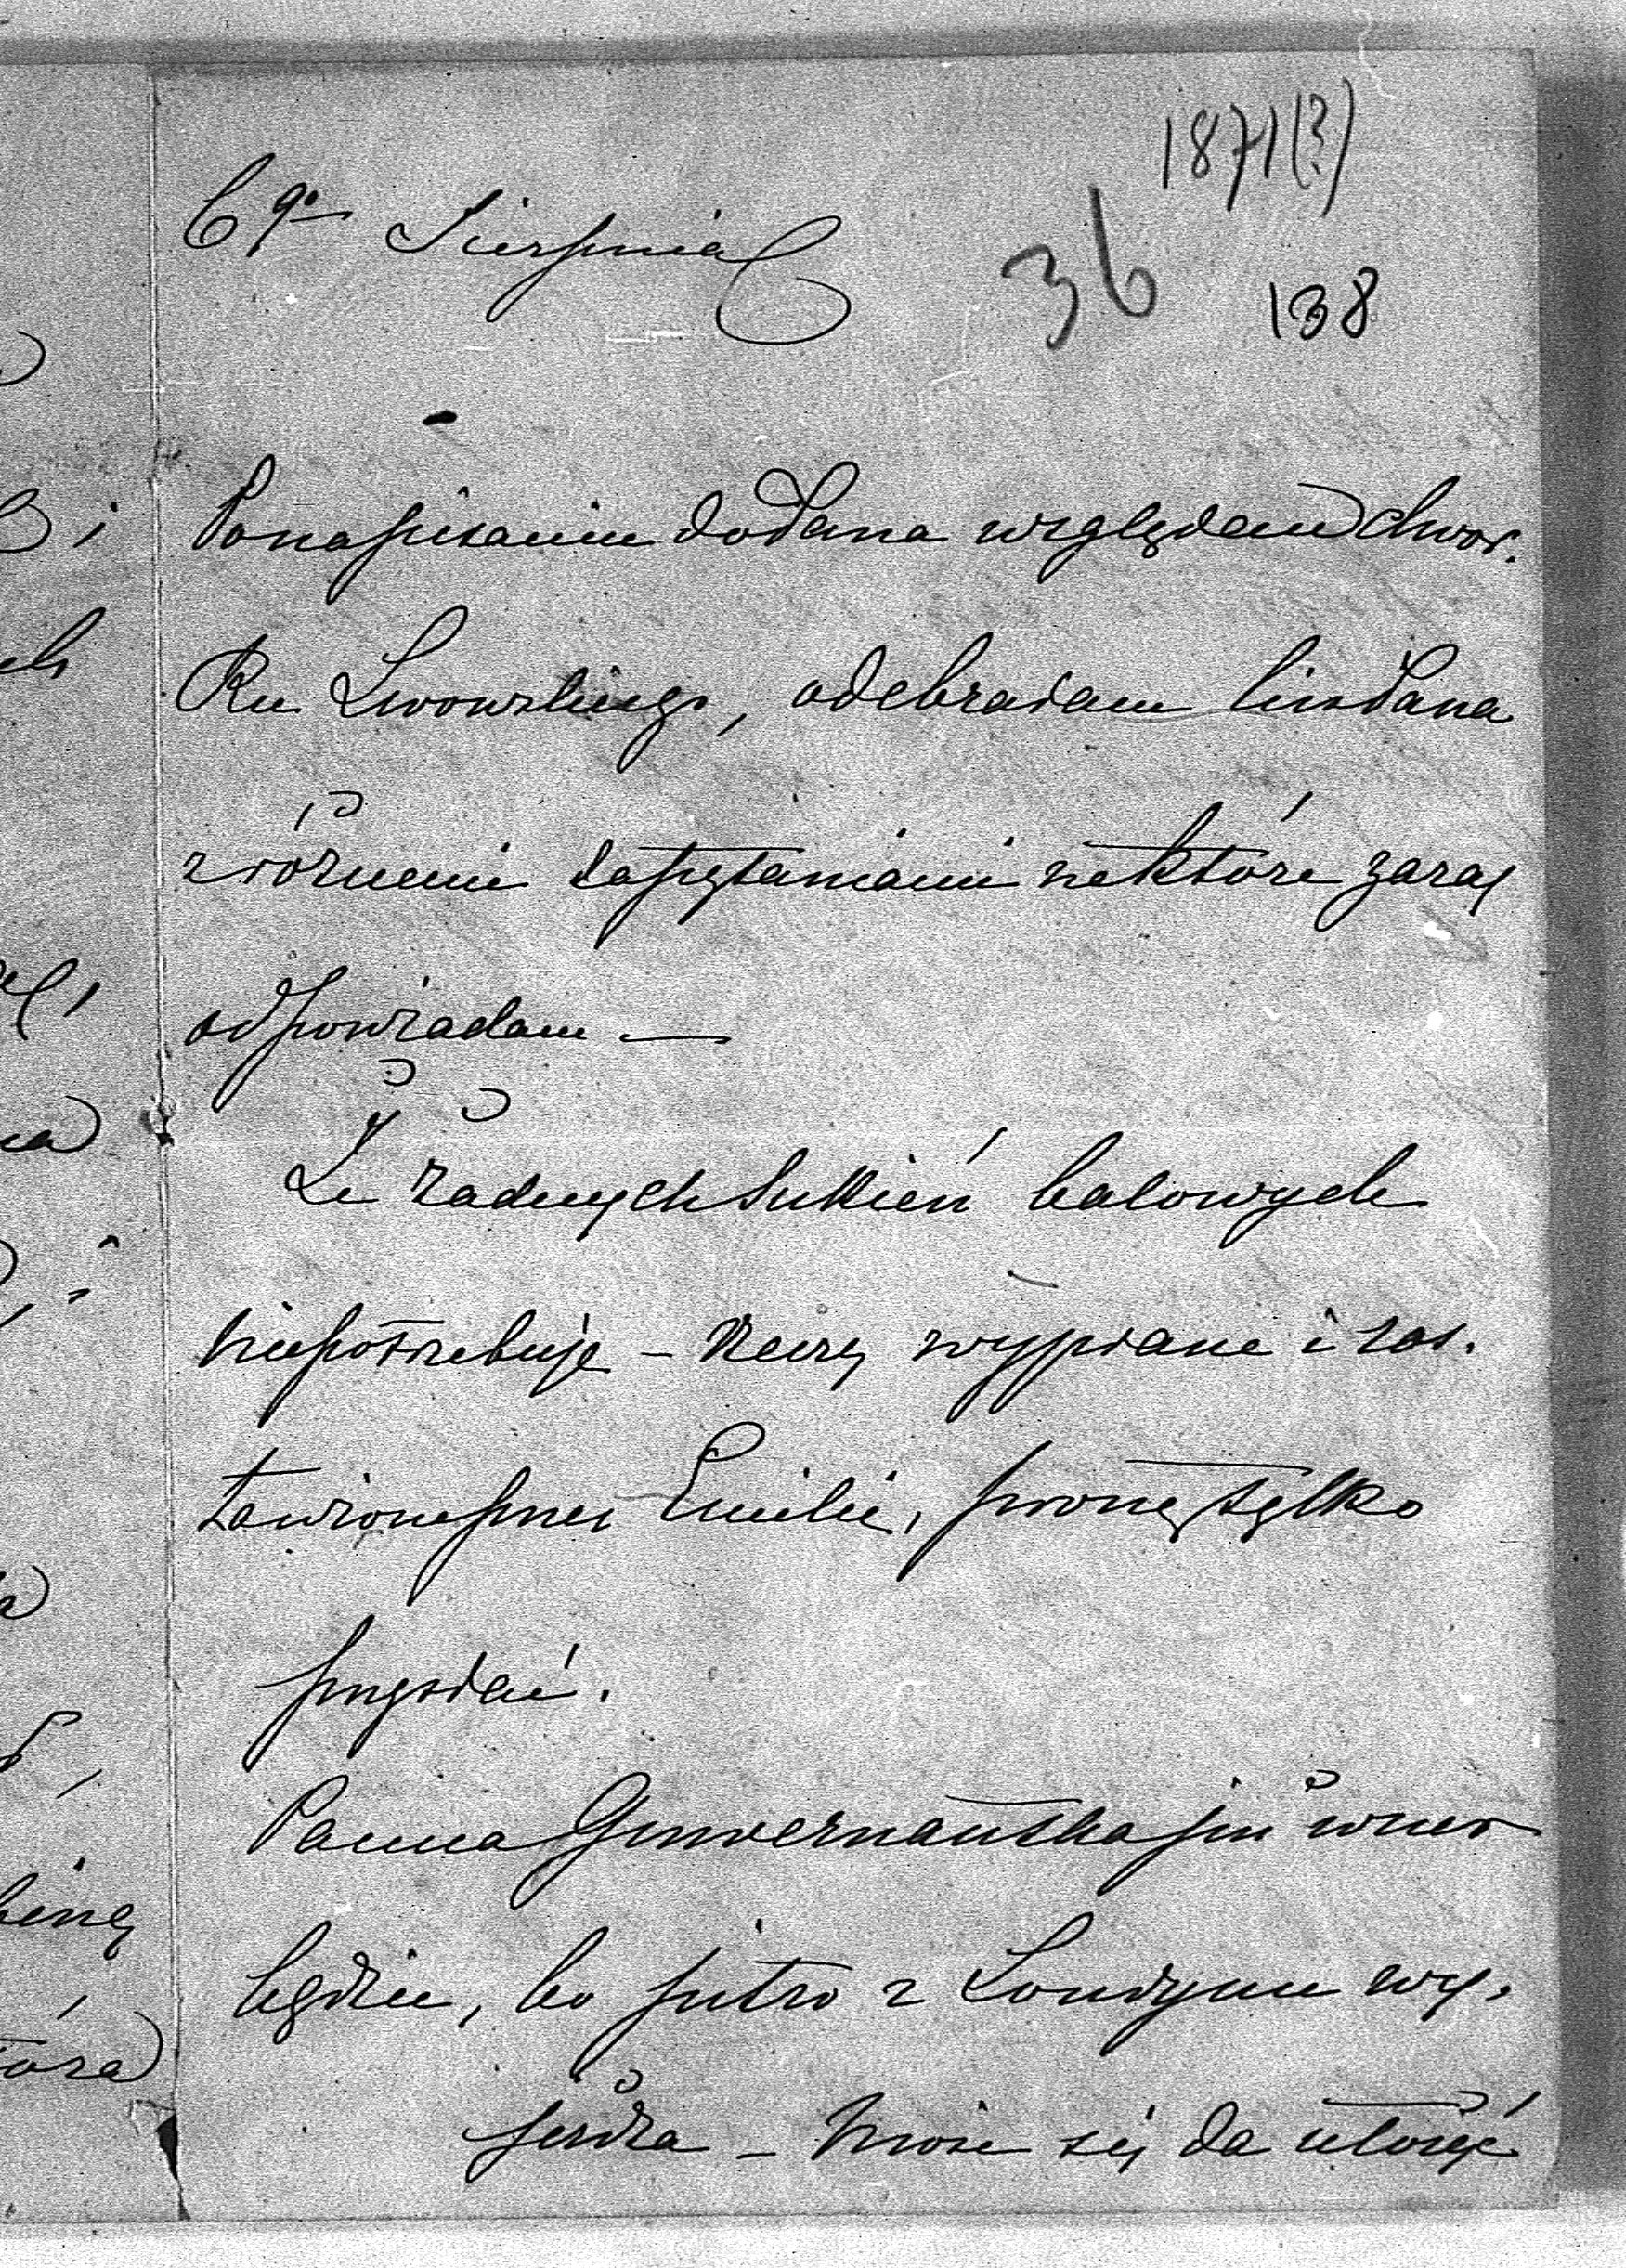 1871(?)
6go Sierpnia
36 138
Po napisaniu do Pana względem dwor.
Ku Lwowskiego, odebrałam list Pana
z różnemi zapytaniami na które zaraz
odpowiadam —
Że żadnych sukien balowych
niepotrzebuje – Rzeczy wyprane i zos.
tawione przez Emilie, proszę tylko
przysłać.
Panna Guwernantka już wnet
będzie, bo jutro z Londynu wy.
jeżdża – Może się da ułożyć